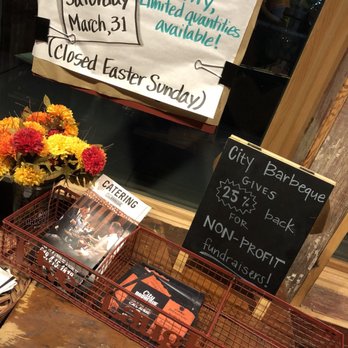 Saturday
March, 31
Limited quantities
available!
(Closed Easter Sunday)
City Barbeque
GIVES
25% back
FOR
NON-PROFIT
fundraisers!
CATERING
CITY